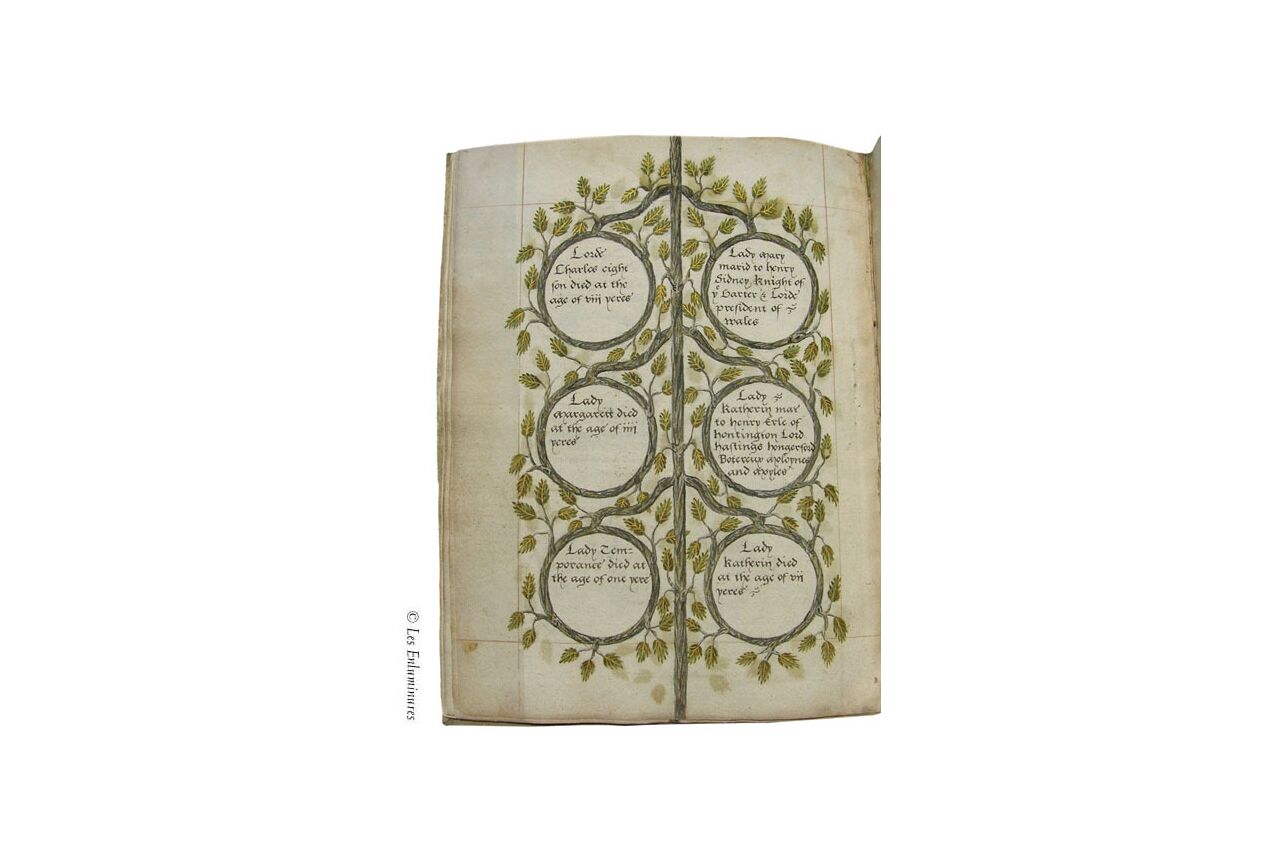 Lorde
Charles eight
son died at the
age of viij yeres
Lady Mary
maried to henry
Sidney Knight of
yᵉ Garter & Lorde
president of
wales
Lady
Margarett died
at the age of iiij
yeres
Lady
Katherin mar
to henry Erle of
hontington Lord
hastings hongerford
Botereux Moloynes
and Moyles
Lady Tem=
porance died at
the age of one yere
Lady
Katherin died
at the age of vij
yeres
© Les Enluminures